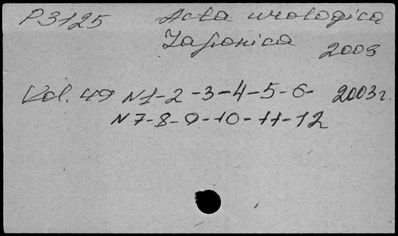 P3125 Acta urologica
Japonica 2003
Vol. 49 N1-2-3-4-5-6- 2003г.
N7-8-9-10-11-12